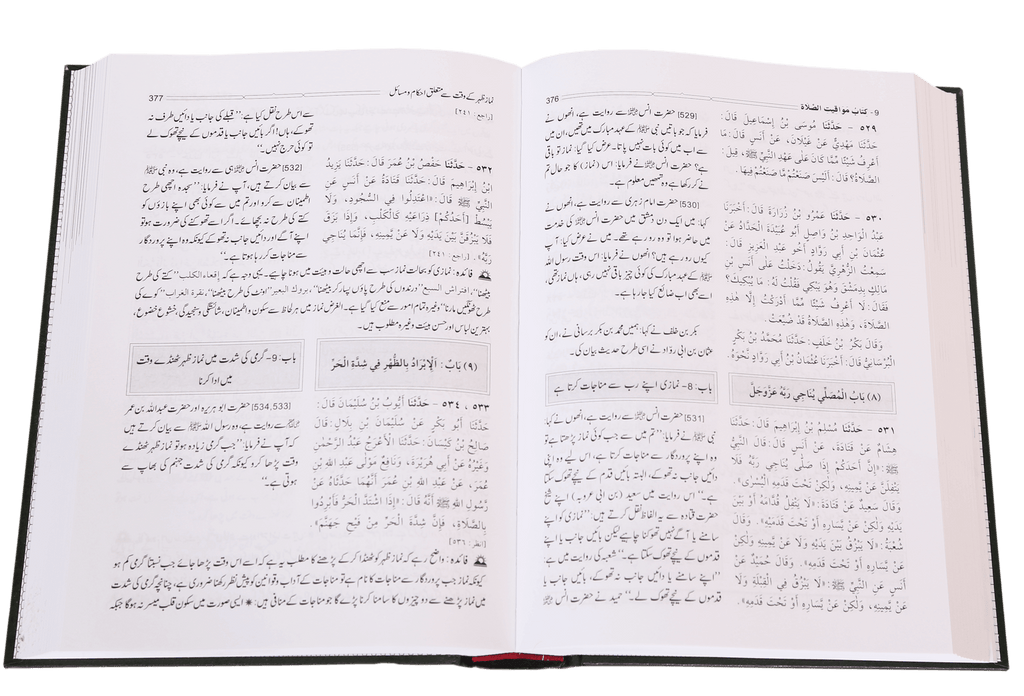 9 - كتاب مواقيت الصلاة
376
٥٢٩ - حَدَّثَنَا مُوسَى بْنُ إِسْمَاعِيلَ قَالَ:
حَدَّثَنَا مَهْدِيٌّ عَنْ غَيْلَانَ، عَنْ أَنَسٍ قَالَ: مَا
أَعْرِفُ شَيْئًا مِمَّا كَانَ عَلَى عَهْدِ النَّبِيِّ ﷺ، قِيلَ:
الصَّلَاةُ؟ قَالَ: أَلَيْسَ صَنَعْتُمْ مَا صَنَعْتُمْ فِيهَا.
[529] حضرت انس ؓ سے روایت ہے، انھوں نے
فرمایا کہ جو باتیں نبی ﷺ کے عہد مبارک میں تھیں، ان میں
سے اب میں کوئی بات نہیں پاتا۔ عرض کیا گیا: نماز تو باقی
ہے؟ حضرت انس ؓ نے فرمایا: اس (نماز) کا جو حال تم
نے کر رکھا ہے وہ تمھیں معلوم ہے۔
٥٣٠ - حَدَّثَنَا عَمْرُو بْنُ زُرَارَةَ قَالَ: أَخْبَرَنَا
عَبْدُ الْوَاحِدِ بْنُ وَاصِلٍ أَبُو عُبَيْدَةَ الْحَدَّادُ عَنْ
عُثْمَانَ بْنِ أَبِي رَوَّادٍ أَخُو عَبْدِ الْعَزِيزِ قَالَ:
سَمِعْتُ الزُّهْرِيَّ يَقُولُ: دَخَلْتُ عَلَى أَنَسِ بْنِ
مَالِكٍ بِدِمَشْقَ وَهُوَ يَبْكِي فَقُلْتُ لَهُ: مَا يُبْكِيكَ؟
فَقَالَ: لَا أَعْرِفُ شَيْئًا مِمَّا أَدْرَكْتُ إِلَّا هَذِهِ
الصَّلَاةَ، وَهَذِهِ الصَّلَاةُ قَدْ ضُيِّعَتْ.
[530] حضرت امام زہری سے روایت ہے، انھوں نے
کہا: میں ایک دن دمشق میں حضرت انس ؓ کی خدمت
میں حاضر ہوا تو وہ رو رہے تھے۔ میں نے عرض کیا: آپ
کیوں رو رہے ہیں؟ انھوں نے فرمایا: اس وقت رسول اللہ
ﷺ کے عہد مبارک کی کوئی چیز باقی نہیں رہی، ہاں نماز تھی،
اسے بھی اب ضائع کیا جا رہا ہے۔
وَقَالَ بَكْرُ بْنُ خَلَفٍ: حَدَّثَنَا مُحَمَّدُ بْنُ بَكْرٍ
الْبُرْسَانِيُّ قَالَ: أَخْبَرَنَا عُثْمَانُ بْنُ أَبِي رَوَّادٍ نَحْوَهُ.
بکر بن خلف نے کہا: ہمیں محمد بن بکر برسانی نے، ان کو
عثمان بن ابی رؤاد نے اسی طرح حدیث بیان کی۔
(٨) بَابٌ الْمُصَلِّي يُنَاجِي رَبَّهُ عَزَّ وَجَلَّ
باب: 8- نمازی اپنے رب سے مناجات کرتا ہے
٥٣١ - حَدَّثَنَا مُسْلِمُ بْنُ إِبْرَاهِيمَ قَالَ: حَدَّثَنَا
هِشَامٌ عَنْ قَتَادَةَ، عَنْ أَنَسٍ قَالَ: قَالَ النَّبِيُّ
ﷺ: «إِنَّ أَحَدَكُمْ إِذَا صَلَّى يُنَاجِي رَبَّهُ فَلَا
يَتْفِلَنَّ عَنْ يَمِينِهِ، وَلَكِنْ تَحْتَ قَدَمِهِ الْيُسْرَى».
وَقَالَ سَعِيدٌ عَنْ قَتَادَةَ: «لَا يَتْفِلُ قُدَّامَهُ أَوْ بَيْنَ
يَدَيْهِ وَلَكِنْ عَنْ يَسَارِهِ أَوْ تَحْتَ قَدَمَيْهِ». وَقَالَ
شُعْبَةُ: «لَا يَبْزُقُ بَيْنَ يَدَيْهِ وَلَا عَنْ يَمِينِهِ وَلَكِنْ
عَنْ يَسَارِهِ أَوْ تَحْتَ قَدَمِهِ». وَقَالَ حُمَيْدٌ عَنْ
أَنَسٍ عَنِ النَّبِيِّ ﷺ: «لَا يَبْزُقْ فِي الْقِبْلَةِ وَلَا
عَنْ يَمِينِهِ، وَلَكِنْ عَنْ يَسَارِهِ أَوْ تَحْتَ قَدَمِهِ».
[531] حضرت انس ؓ سے روایت ہے، انھوں نے کہا:
نبی ﷺ نے فرمایا: ”تم میں سے جب کوئی نماز پڑھتا ہے تو
وہ اپنے پروردگار سے مناجات کرتا ہے، اس لیے وہ اپنی
دائیں جانب نہ تھوکے، البتہ بائیں قدم کے نیچے تھوک سکتا
ہے۔“ اس روایت میں سعید (بن ابی عروبہ) اپنے شیخ
حضرت قتادہ سے یہ الفاظ نقل کرتے ہیں: ”نمازی کو اپنے
سامنے یا آگے نہیں تھوکنا چاہیے لیکن بائیں جانب یا اپنے
قدموں کے نیچے تھوک سکتا ہے۔“ شعبہ کی روایت میں ہے:
”اپنے سامنے یا دائیں جانب نہ تھوکے، بائیں جانب یا
قدموں کے نیچے تھوک لے۔“ حمید نے حضرت انس ؓ
نماز ظہر کے وقت سے متعلق احکام و مسائل
377
[راجع: ٢٤١]
سے اس طرح نقل کیا ہے: ”قبلے کی جانب یا دائیں طرف نہ
تھوکے، ہاں! اگر بائیں جانب یا قدموں کے نیچے تھوک لے
تو کوئی حرج نہیں۔“
٥٣٢ - حَدَّثَنَا حَفْصُ بْنُ عُمَرَ قَالَ: حَدَّثَنَا يَزِيدُ
ابْنُ إِبْرَاهِيمَ قَالَ: حَدَّثَنَا قَتَادَةُ عَنْ أَنَسٍ عَنِ
النَّبِيِّ ﷺ قَالَ: «اعْتَدِلُوا فِي السُّجُودِ، وَلَا
يَبْسُطْ [أَحَدُكُمْ] ذِرَاعَيْهِ كَالْكَلْبِ، وَإِذَا بَزَقَ
فَلَا يَبْزُقَنَّ بَيْنَ يَدَيْهِ وَلَا عَنْ يَمِينِهِ، فَإِنَّمَا يُنَاجِي
رَبَّهُ». [راجع: ٢٤١]
[532] حضرت انس ؓ سے روایت ہے، وہ نبی ﷺ
سے بیان کرتے ہیں، آپ نے فرمایا: ”سجدہ اچھی طرح
اطمینان سے کرو اور تم میں سے کوئی بھی اپنے بازوؤں کو
کتے کی طرح نہ بچھائے۔ اگر اسے تھوکنے کی ضرورت ہو تو
اپنے آگے اور دائیں جانب نہ تھوکے کیونکہ وہ اپنے پروردگار
سے مناجات کر رہا ہوتا ہے۔“
فائدہ: نمازی کو بحالت نماز سب سے اچھی حالت و ہیئت میں ہونا چاہیے۔ یہی وجہ ہے کہ إقعاء الكلب ”کتے کی طرح
بیٹھنا“، افتراش السبع ”درندوں کی طرح پاؤں پسار کر بیٹھنا“، بروك البعير ”اونٹ کی طرح بیٹھنا“، نقرة الغراب ”کوے کی
طرح ٹھونگیں مارنا“ وغیرہ تمام امور سے منع کیا گیا ہے۔ الغرض نماز میں ہر لحاظ سے سکون و اطمینان، شائستگی و سنجیدگی، خشوع خضوع،
بہترین لباس اور حسن ہیئت وغیرہ مطلوب ہیں۔
(٩) بَابُ: الْإِبْرَادُ بِالظُّهْرِ فِي شِدَّةِ الْحَرِّ
باب: 9- گرمی کی شدت میں نماز ظہر ٹھنڈے وقت
میں ادا کرنا
٥٣٣، ٥٣٤ - حَدَّثَنَا أَيُّوبُ بْنُ سُلَيْمَانَ قَالَ:
حَدَّثَنَا أَبُو بَكْرٍ عَنْ سُلَيْمَانَ بْنِ بِلَالٍ: قَالَ
صَالِحُ بْنُ كَيْسَانَ: حَدَّثَنَا الْأَعْرَجُ عَبْدُ الرَّحْمَنِ
وَغَيْرُهُ عَنْ أَبِي هُرَيْرَةَ، وَنَافِعٌ مَوْلَى عَبْدِ اللهِ بْنِ
عُمَرَ، عَنْ عَبْدِ اللهِ بْنِ عُمَرَ أَنَّهُمَا حَدَّثَاهُ عَنْ
رَسُولِ اللهِ ﷺ أَنَّهُ قَالَ: «إِذَا اشْتَدَّ الْحَرُّ فَأَبْرِدُوا
بِالصَّلَاةِ، فَإِنَّ شِدَّةَ الْحَرِّ مِنْ فَيْحِ جَهَنَّمَ».
[انظر: ٥٣٦]
[534,533] حضرت ابوہریرہ اور حضرت عبداللہ بن عمر
ؓ سے روایت ہے، وہ رسول اللہ ﷺ سے بیان کرتے ہیں
کہ آپ نے فرمایا: ”جب گرمی زیادہ ہو تو نماز ظہر ٹھنڈے
وقت پڑھا کرو کیونکہ گرمی کی شدت جہنم کی بھاپ سے
ہوتی ہے۔“
فائدہ: واضح رہے کہ نماز ظہر کو ٹھنڈا کر کے پڑھنے کا مطلب یہ ہے کہ اسے اس وقت پڑھا جائے جب نسبتاً گرمی کم ہو
کیونکہ نماز جب پروردگار سے مناجات کا نام ہے تو مناجات کے آداب و قوانین کو پیش نظر رکھنا ضروری ہے، چنانچہ گرمی کی شدت
میں نماز پڑھنے سے دو چیزوں کا سامنا کرنا پڑے گا جو مناجات کے منافی ہیں: ✺ ایسی صورت میں سکون قلب میسر نہ ہوگا جبکہ